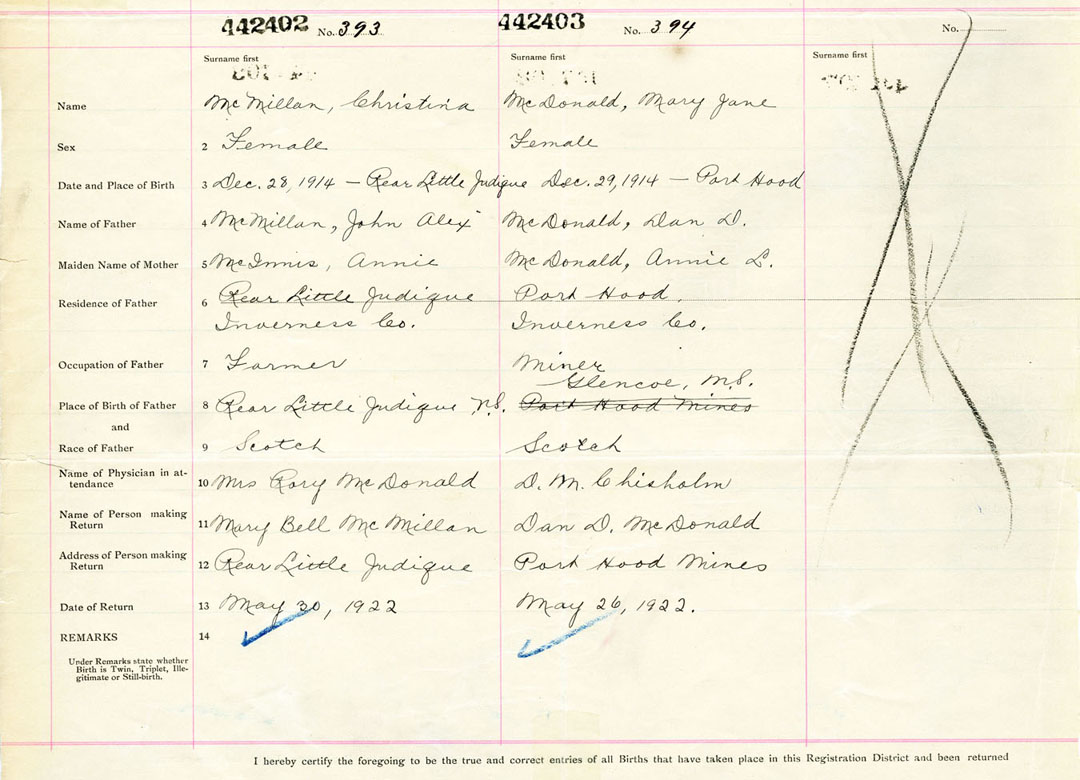 442402 No. 393 442403 No. 394 No.
Surname first Surname first Surname first
Name McMillan, Christina McDonald, Mary Jane
Sex 2 Female Female
Date and Place of Birth 3 Dec. 28, 1914 – Rear Little Judique Dec. 29, 1914 – Port Hood
Name of Father 4 McMillan, John Alex McDonald, Dan D.
Maiden Name of Mother 5 McInnis, Annie McDonald, Annie L.
Residence of Father 6 Rear Little Judique Port Hood.
Inverness Co. Inverness Co.
Occupation of Father 7 Farmer Miner
Glencoe, N.S.
Place of Birth of Father 8 Rear Little Judique N.S. Port Hood Mines
and
Race of Father 9 Scotch Scotch
Name of Physician in at-
tendance 10 Mrs Rory McDonald D. M. Chisholm
Name of Person making
Return 11 Mary Bell McMillan Dan D. McDonald
Address of Person making
Return 12 Rear Little Judique Port Hood Mines
Date of Return 13 May 30, 1922 May 26, 1922.
REMARKS 14
Under Remarks state whether
Birth is Twin, Triplet, Ille-
gitimate or Still-birth.
I hereby certify the foregoing to be the true and correct entries of all Births that have taken place in this Registration District and been returned